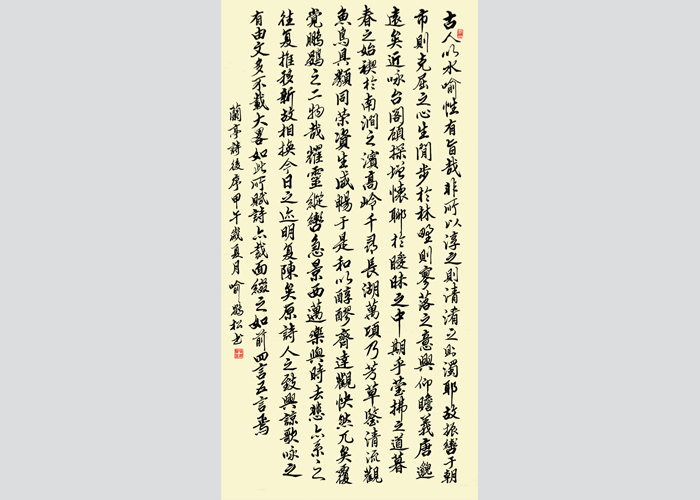 古人以水喻性有旨哉非所以淳之則清淆之則濁耶故振轡于朝
市則克屈之心生閒步於林野則寥落之意興仰瞻羲唐邈
遠矣近咏台閣顧探增懷聊於曖昧之中期乎瑩拂之道暮
春之始禊於南澗之濱高岭千尋長湖萬頃乃芳草鑒清流觀
魚鳥具類同榮資生咸暢于是和以醇醪齊達觀快然兀矣覆
覺鵬鷃之二物哉耀靈縱轡急景西邁樂與時去悲亦系之
往复推移新故相換今日之迹明复陳矣原詩人之致興諒歌咏之
有由文多不載大畧如此所賦詩亦裁面綴之如前四言五言焉
蘭亭詩後序甲午歲夏月喻鶴松书